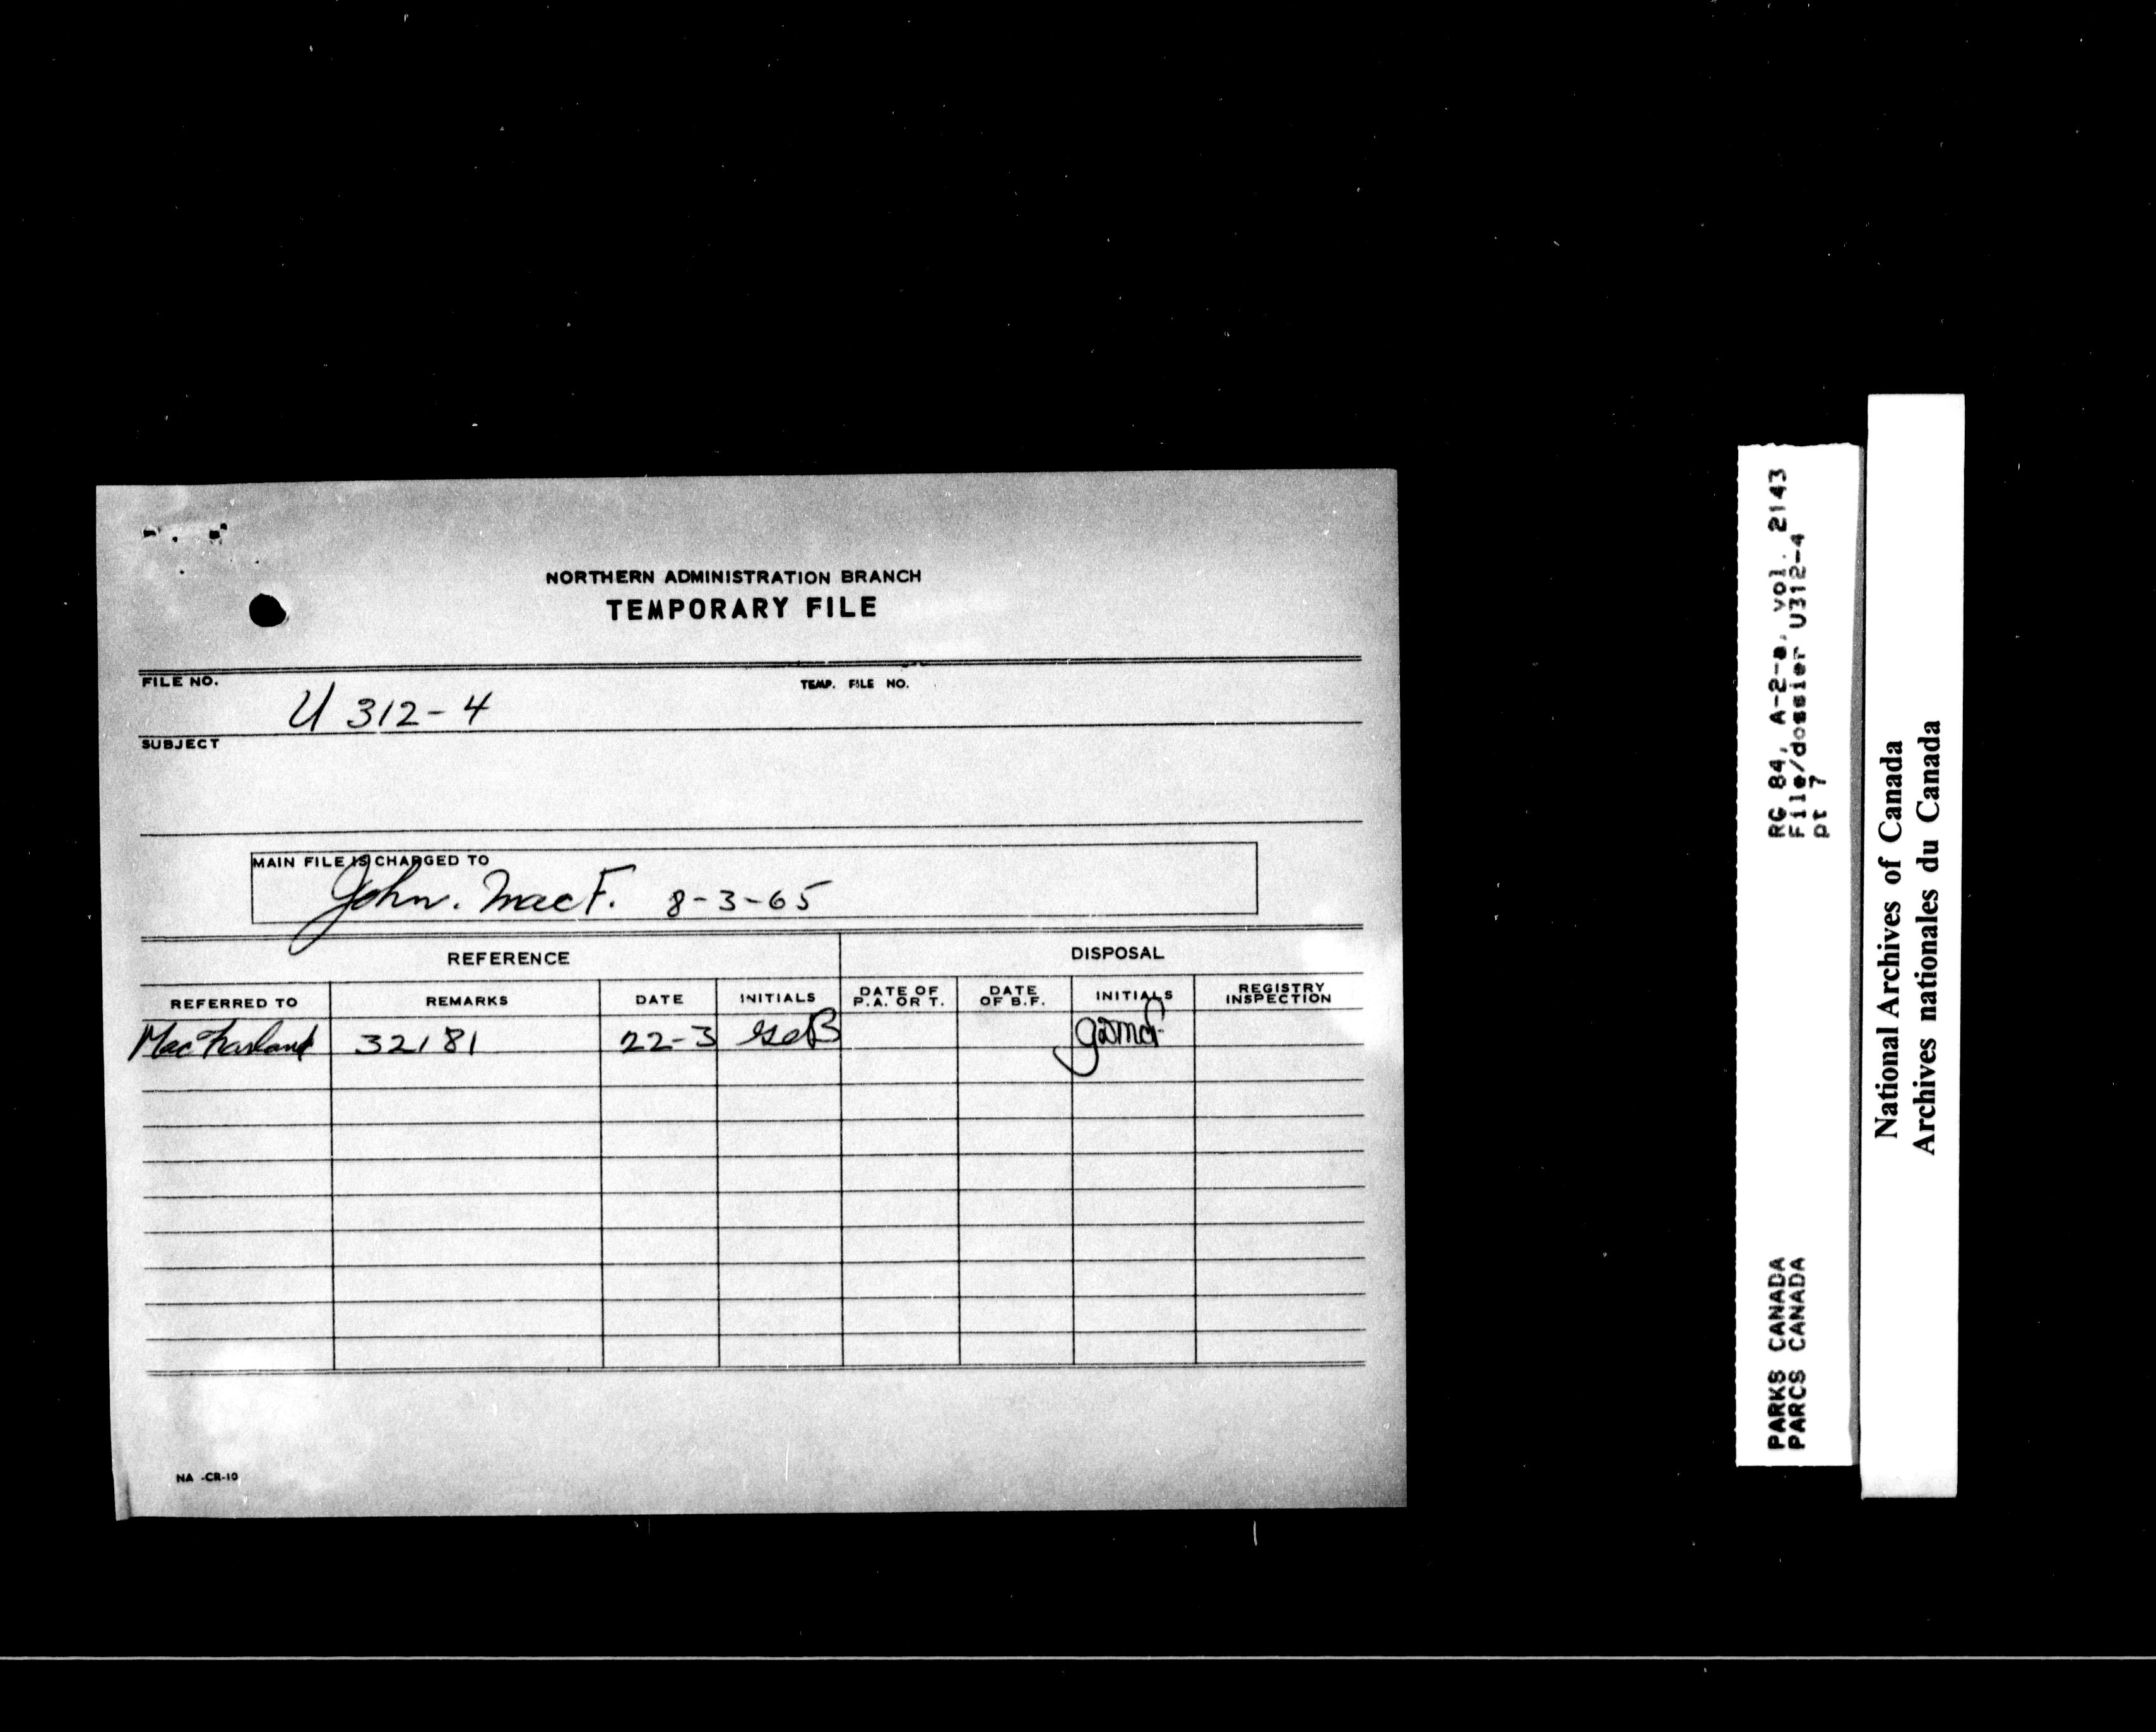 NORTHERN ADMINISTRATION BRANCH
TEMPORARY FILE
FILE NO. U 312-4 TEMP. FILE NO.
SUBJECT
MAIN FILE IS CHARGED TO
John. MacF. 8-3-65
REFERENCE DISPOSAL
REFERRED TO REMARKS DATE INITIALS DATE OF P.A. OR T. DATE OF B.F. INITIALS REGISTRY INSPECTION
MacFarland 32181 22-3
NA -CR-10
RG 84, A-2-a, vol. 2143
File/dossier U312-4
pt 7
PARKS CANADA
PARCS CANADA
National Archives of Canada
Archives nationales du Canada